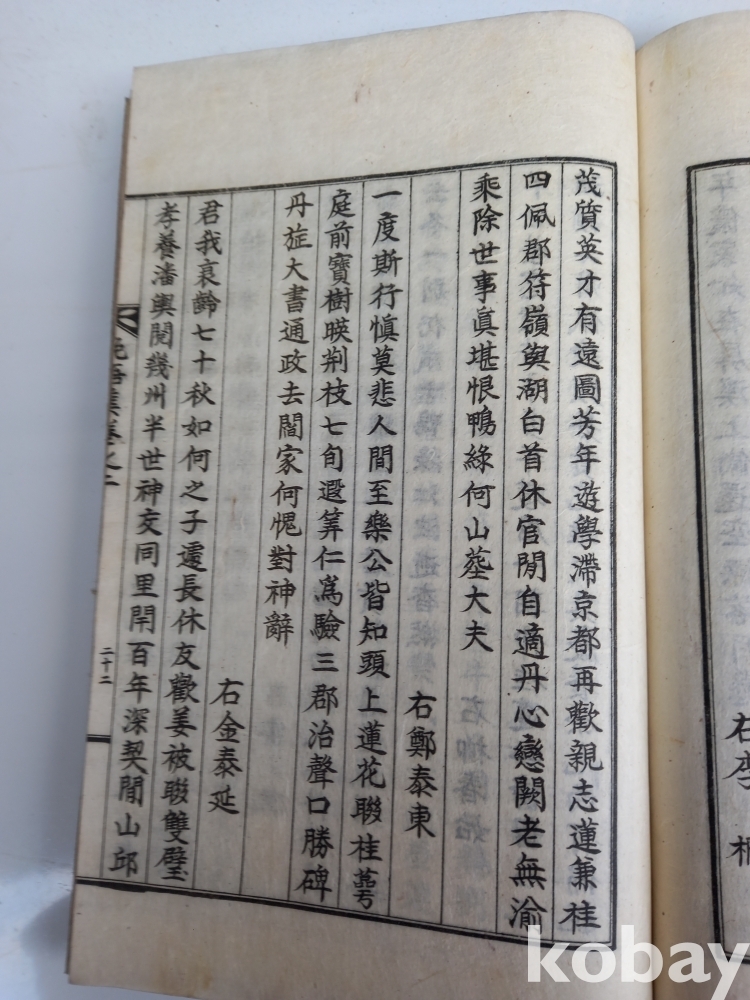 右李 桐
茂質英才有遠圖芳年遊學滯京都再歡親志蓮兼桂
四佩郡符嶺與湖白首休官閒自適丹心戀闕老無渝
乘除世事眞堪恨鴨綠何山葬大夫
右鄭泰東
一度斯行愼莫悲人間至樂公皆知頭上蓮花聯桂蕚
庭前寶樹暎荆枝七旬遐筭仁爲驗三郡治聲口勝碑
丹旌大書通政去閻家何愧對神辭
右金泰延
君我衰齡七十秋如何之子遽長休友歡姜被聯雙璧
孝養潘輿閱幾州半世神交同里閈百年深契閒山邱
晩悟集卷之二
二十二
kobay